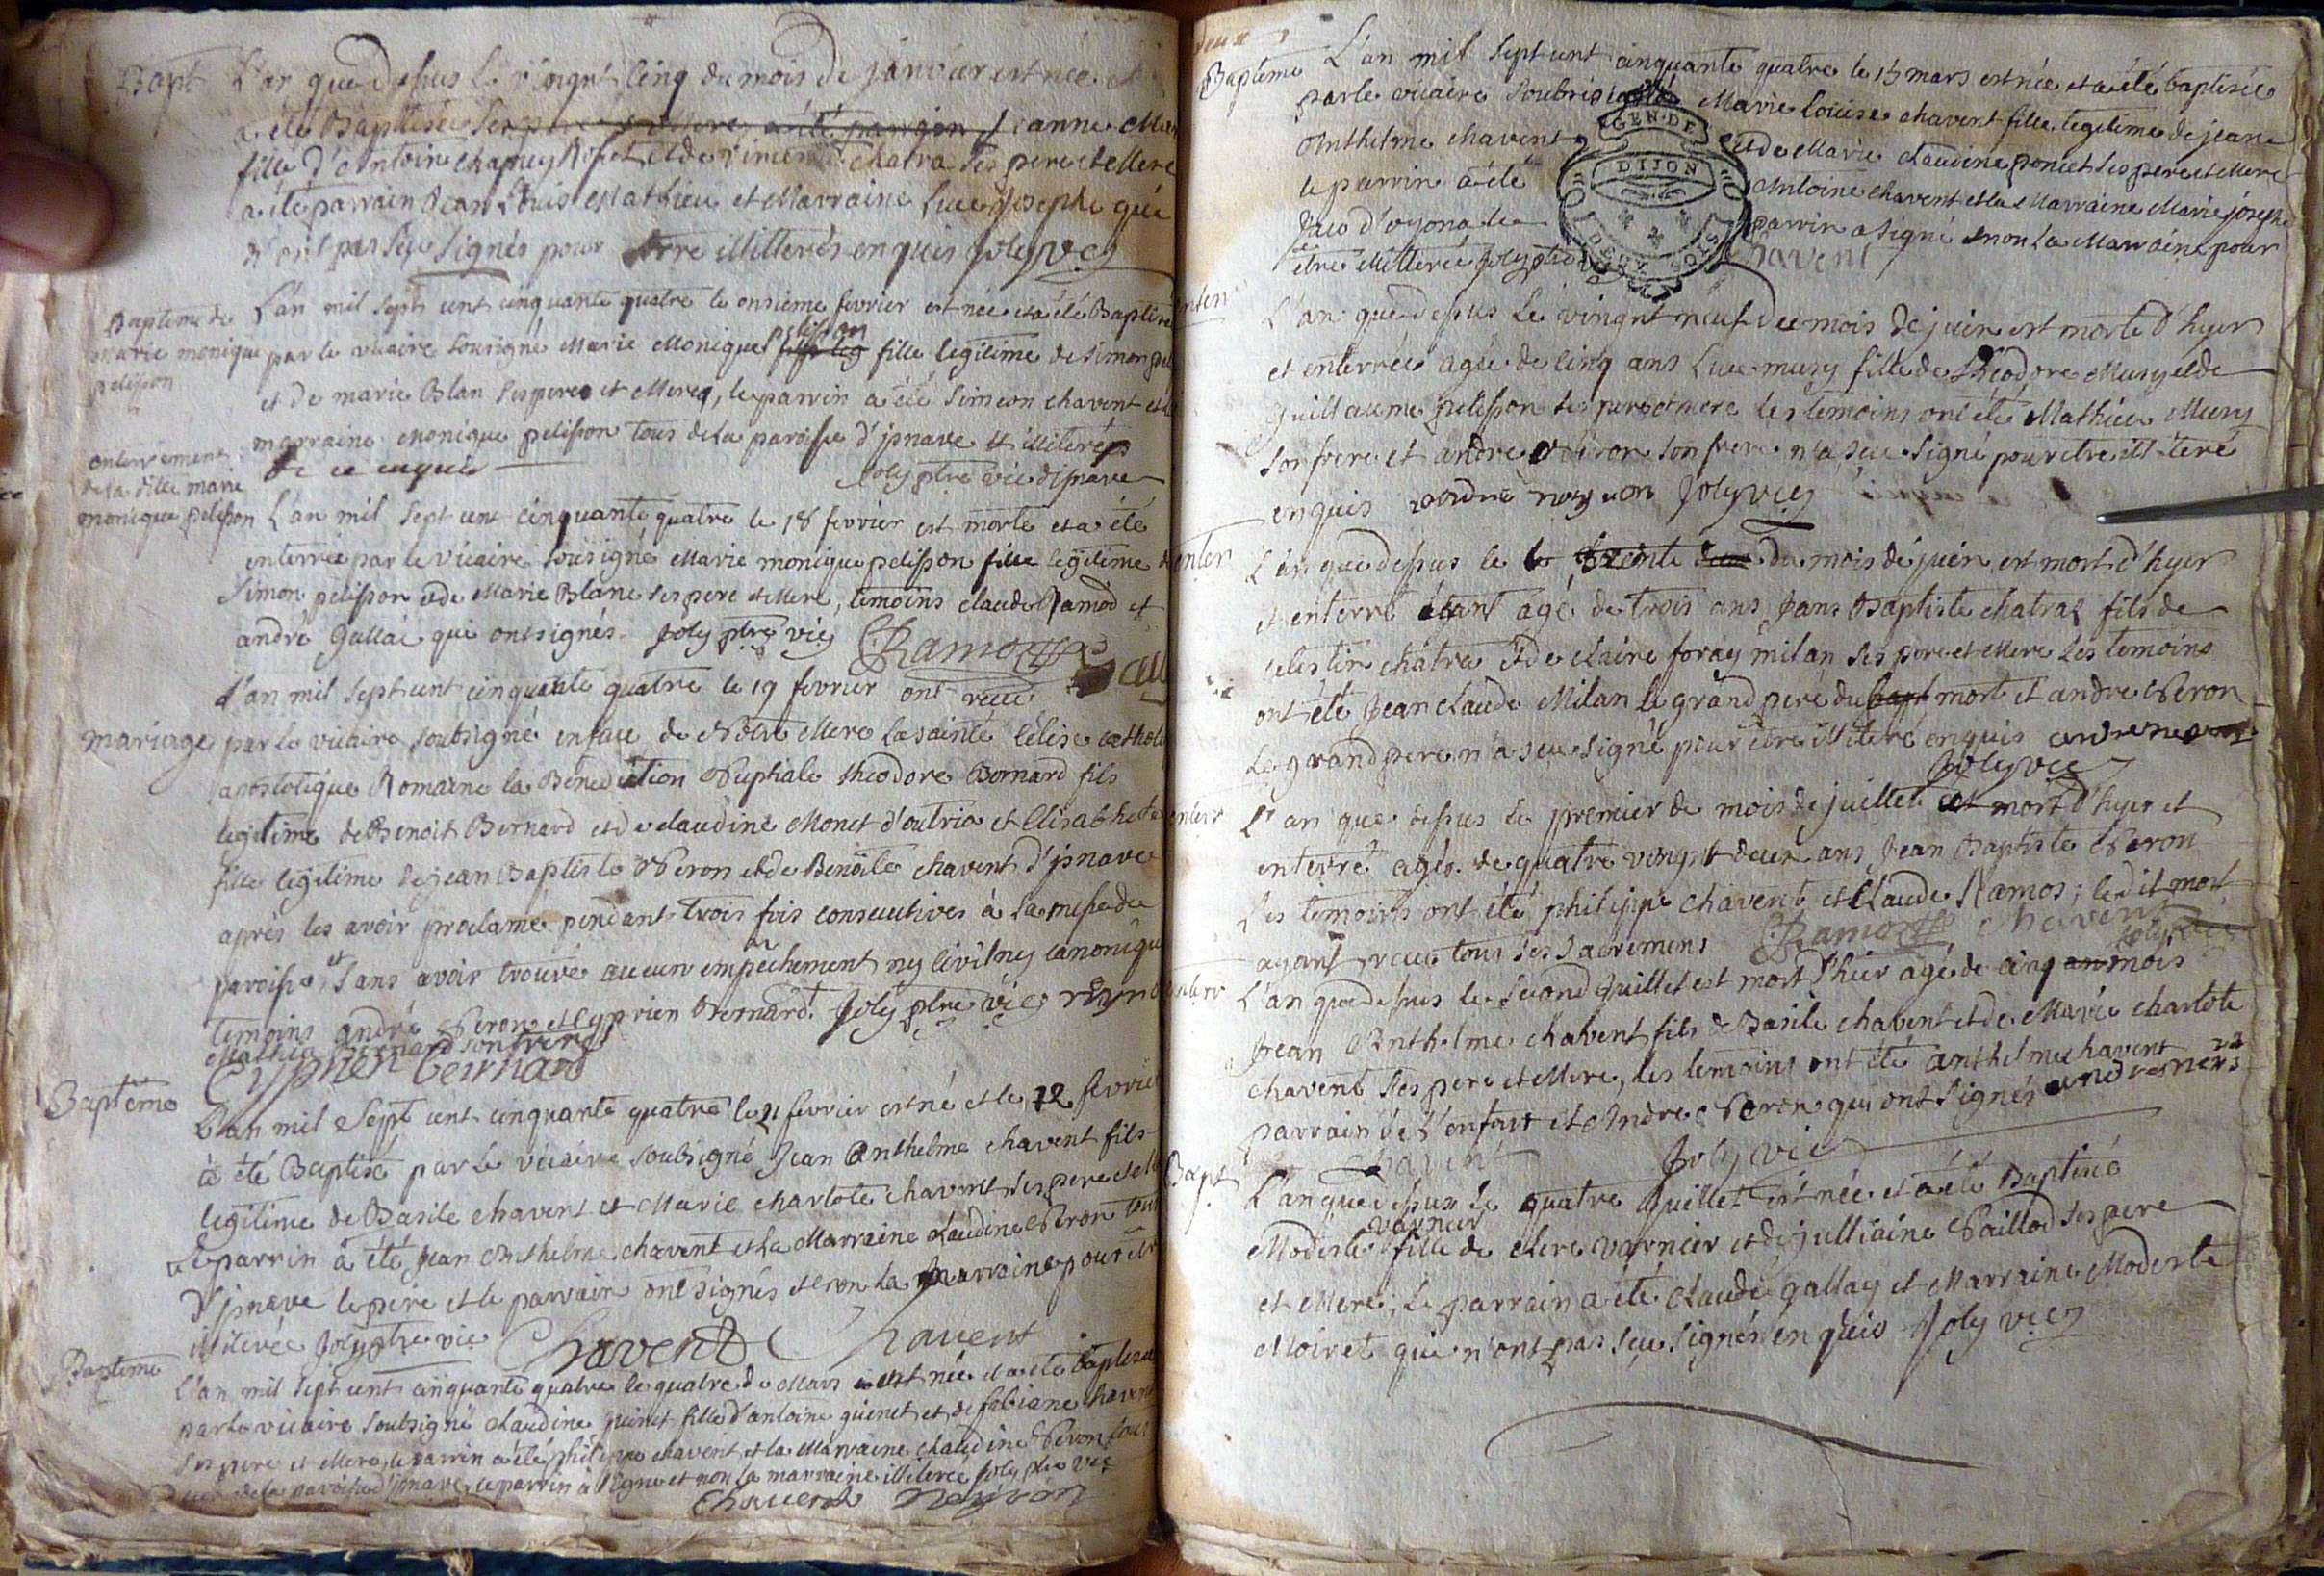 Bapt L'an que dessus le vingt cinq du mois de janvier est née et
a été Baptisée Jeanne Mar
fille d'Antoine Chapuy et de chatra ses pere et Mere
a été parrain Jean Louis Mathieu et Marraine Luce Josephe qui
n'ont pas seu signés pour etre illiterés enquis Joly vic
Bapteme de L'an mil sept cent cinquante quatre le onsieme fevrier est née et a été Baptisée
marie monique par le vicaire sousigné Marie Monique pelisson fille legitime de Simon
pelisson et de marie Blan ses peres et Meres, le parrin a été Simeon chavent et la
marraine Monique pelisson tous de la paroisse d'isnave et illiterés
de ce enquis
Joly ptre vic d'isnave
enterrement de la dille marie monique pelisson
L'an mil sept cent cinquante quatre le 18 fevrier est morte et a été
enterrée par le vicaire sousigné Marie monique pelisson fille legitime de
Simon pelisson et de Marie Blanc ses pere et Mere, temoins claude Ramod et
andré Gallai qui ont signés Joly ptre vic Ramoz
L'an mil sept cent cinquante quatre le 19 fevrier ont receu
mariage par le vicaire soubsigné en face de Notre Mere la sainte Eelise catholi
apostolique Romaine la Benediction Nuptiale theodore Bernard fils
legitime de Benoit Bernard et de claudine Monet d'outria et Elisabhet
fille legitime de jean Baptiste Neron et de Benoite chavent d'isnave
après les avoir proclamé pendant trois fois consecutives à la messe de
paroisse et sans avoir trouvé aucun empêchement ny civil ny canonique
temoins andré Neron et Cyprien Bernard. Joly ptre vic
Mathieu Bernard son frere
Cyprien bernard
Bapteme L'an mil sept cent cinquante quatre le 21 fevrier est né et le 22 fevrier
à été Baptisé par le vicaire soubsigné Jean Anthelme chavent fils
legitime de Basile chavent et Marie charlote chavent ses pere et Me
le parrin à été Jean Anthelme chavent et la Marraine claudine Neron tous
d'isnave le pere et le parrain ont signés et non la marraine pour etre
illiterée Joly ptre vic Chavent Chavent
Bapteme L'an mil sept cent cinquante quatre le quatre de Mars est née et a été baptisée
par le vicaire soubsigné claudine guinet fille d'antoine guinet et de fabiane chavent
ses pere et Mere, le parrin a été philippe chavent et la Marraine claudine Neron tous
de la paroisse d'isnave, le parrin a signé et non la marraine illiterée Joly ptre vic
Chavent Neyron
Bapteme L'an mil sept cent cinquante quatre le 15 mars est née et a été baptisée
par le vicaire soubsigné Marie louise chavent fille legitime de jean
Anthelme chavent et de Marie claudine poncet ses pere et Mere
le parrin a été Antoine chavent et la Marraine Marie josephe
d'oyona le parrin a signé et non la Marraine pour
être illiterée Joly ptre Chavent
GEN. DE
DIJON
DEUX SOLS
L'an que dessus le vingt neuf du mois de juin est morte d'hyer
et enterrée agée de cinq ans Luce mury fille de theodore Mury et de
guillaume pelisson ses pere et mere les temoins ont été Mathieu Mury
son frere et andre Neron son frere n'a seu signé pour etre illiteré
enquis andre neyron Joly vic
enter L'an que dessus le trente du mois de juin est mort d'hyer
et enterré étant agé de trois ans Jans Baptiste chatraz fils de
celestin chatra et de claire foray milan ses pere et Mere les temoins
ont été Jean claude Milan le grand pere du mort et andre Neron
Le grand pere n'a seu signé pour être illiteré enquis andre neyron
Joly vic
enterr L'an que dessus le premier de mois de juillet est mort d'hyer et
enterré agés de quatre vingt deux ans Jean Baptiste Neron
Les temoins ont été philippe chavent et Claude Ramos; ledit mort
ayant receu tous ses sacremens Ramoz chavent
Joly vic
enterr L'an que dessus le second Juillet est mort d'hier agé de cinq mois
Jean Anthelme chavent fils de Basile chavent et de Marie charlote
chavent ses pere et Mere, les temoins ont été anthelme chavent
parrain de l'enfant et Andre Neron qui ont signés andre neyron
Chavent Joly vic
Bapt L'an que dessus le quatre Juillet est née et a été Baptisé
Modeste varnier fille de clere varnier et de julliaine Paillod ses pere
et Mere; Le parrain a été claude gallay et Marraine Modeste
Moiret qui n'ont pas seu signés enquis Joly vic